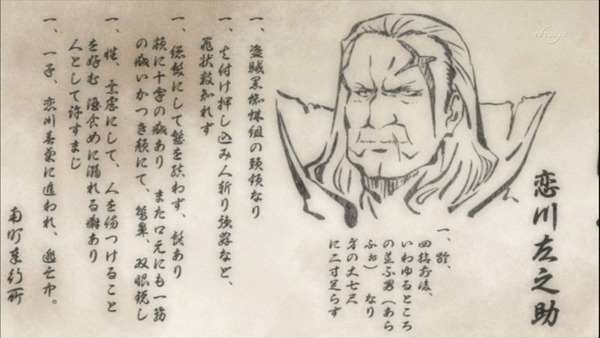 恋川左之助
一、齢、
四拾前後、
いわゆるところ
の荒ふ男(あら
ふぉ)なり
身の丈七尺
に二寸足らず
一、盗賊黒蜘蛛組の頭領なり
一、火付け押し込み人斬り強盗など、
罪状数知れず
一、総髪にして髷を結わず、髭あり
額に十字の疵あり また口元にも一筋
の疵 いかつき顔にて、鷲鼻、双眼鋭し
一、性、にして、人を傷つけること
を好む に溺れる癖あり
人として許すまじ
一、一子、恋川春菜に追われ、逃亡中。
南町奉行所